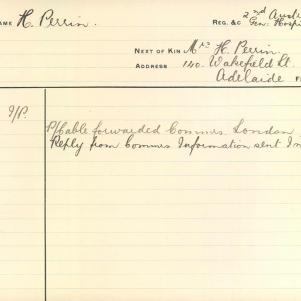 NAME H. Perrin. REG. &C 2nd Aust
Gen. Hospi
NEXT OF KIN Mrs H. Perrin.
ADDRESS 140. Wakefield St.
Adelaide
I/P. P/Cable forwarded Commrs London
Reply from Commrs Information sent